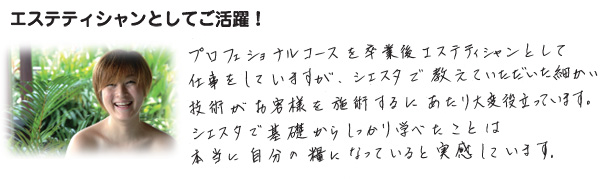 エステティシャンとしてご活躍！
プロフェショナルコースを卒業後エステティシャンとして
仕事をしていますが、シエスタで教えていただいた細かい
技術がお客様を施術するにあたり大変役立っています。
シエスタで基礎からしっかり学べたことは
本当に自分の糧になっていると実感しています。